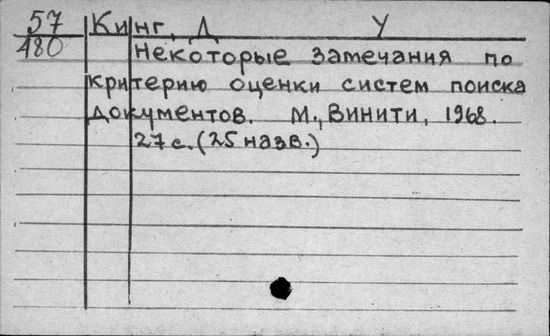 57 Кинг, Д У
180 Некоторые замечания по
критерию оценки систем поиска
документов. М., Винити, 1968.
27 с. (25 назв.)